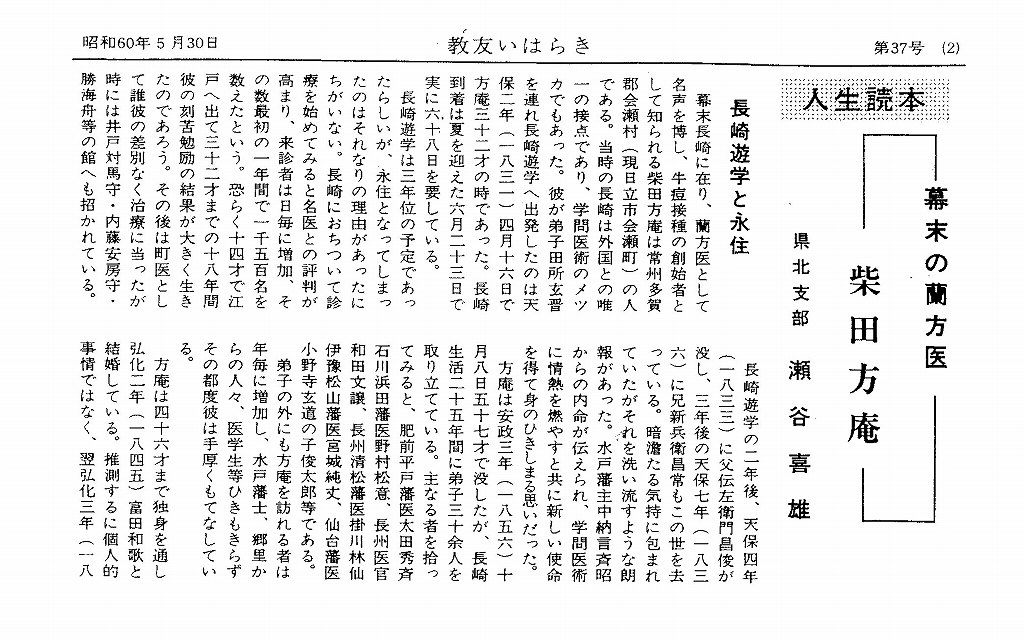 昭和60年5月30日
教友いはらき
第37号 (2)
人生読本
幕末の蘭方医
柴田方庵
県北支部 瀬谷喜雄
長崎遊学と永住
幕末長崎に在り、蘭方医として
名声を博し、牛痘接種の創始者と
して知られる柴田方庵は常州多賀
郡会瀬村(現日立市会瀬町)の人
である。当時の長崎は外国との唯
一の接点であり、学問医術のメツ
カでもあった。彼が弟子田所玄晋
を連れ長崎遊学へ出発したのは天
保二年(一八三一)四月十六日で
方庵三十二才の時であった。長崎
到着は夏を迎えた六月二十三日で
実に六十八日を要している。
長崎遊学は三年位の予定であっ
たらしいが、永住となってしまっ
たのはそれなりの理由があったに
ちがいない。長崎におちついて診
療を始めてみると名医との評判が
高まり、来診者は日毎に増加、そ
の数最初の一年間で一千五百名を
数えたという。恐らく十四才で江
戸へ出て三十二才までの十八年間
彼の刻苦勉励の結果が大きく生き
たのであろう。その後は町医とし
て誰彼の差別なく治療に当ったが
時には井戸対馬守・内藤安房守・
勝海舟等の館へも招かれている。
長崎遊学の二年後、天保四年
(一八三三)に父伝左衛門昌俊が
没し、三年後の天保七年(一八三
六)に兄新兵衛昌常もこの世を去
っている。暗澹たる気持に包まれ
ていたがそれを洗い流すような朗
報があった。水戸藩主中納言斉昭
からの内命が伝えられ、学問医術
に情熱を燃やすと共に新しい使命
を得て身のひきしまる思いだった。
方庵は安政三年(一八五六)十
月八日五十七才で没したが、長崎
生活二十五年間に弟子三十余人を
取り立てている。主なる者を拾っ
てみると、肥前平戸藩医太田秀斉
石川浜田藩医野村松意、長州医官
和田文譲、長州清松藩医掛川林仙
伊豫松山藩医宮城純丈、仙台藩医
小野寺玄道の子俊太郎等である。
弟子の外にも方庵を訪れる者は
年毎に増加し、水戸藩士、郷里か
らの人々、医学生等ひきもきらず
その都度彼は手厚くもてなしてい
る。
方庵は四十六才まで独身を通し
弘化二年(一八四五)富田和歌と
結婚している。推測するに個人的
事情ではなく、翌弘化三年(一八